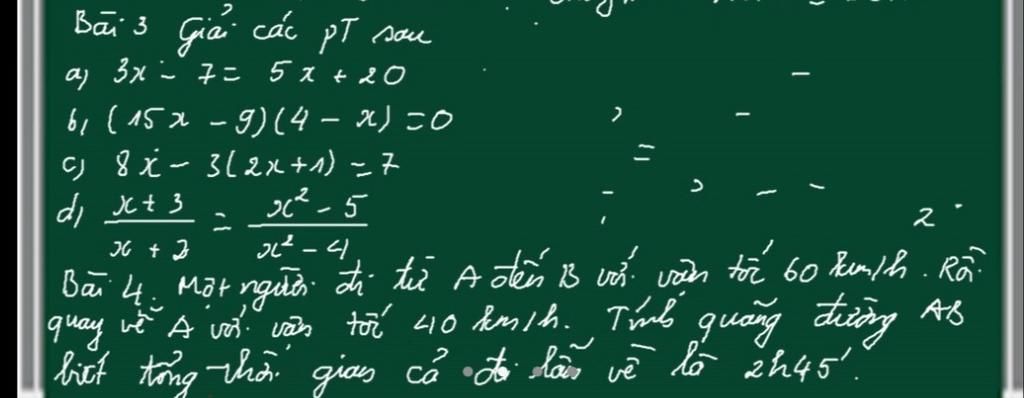 Bài 3 Giải các pT sau
a) 3x - 7 = 5x + 20
b) (15x - 9)(4 - x) = 0
c) 8x - 3(2x+1) = 7
d) \frac{x+3}{x+2} = \frac{x^2-5}{x^2-4}
Bài 4. Một người đi từ A đến B với vận tốc 60 km/h. Rồi
quay về A với vận tốc 40 km/h. Tính quãng đường AB
biết tổng thời gian cả đi lẫn về là 2h45'.